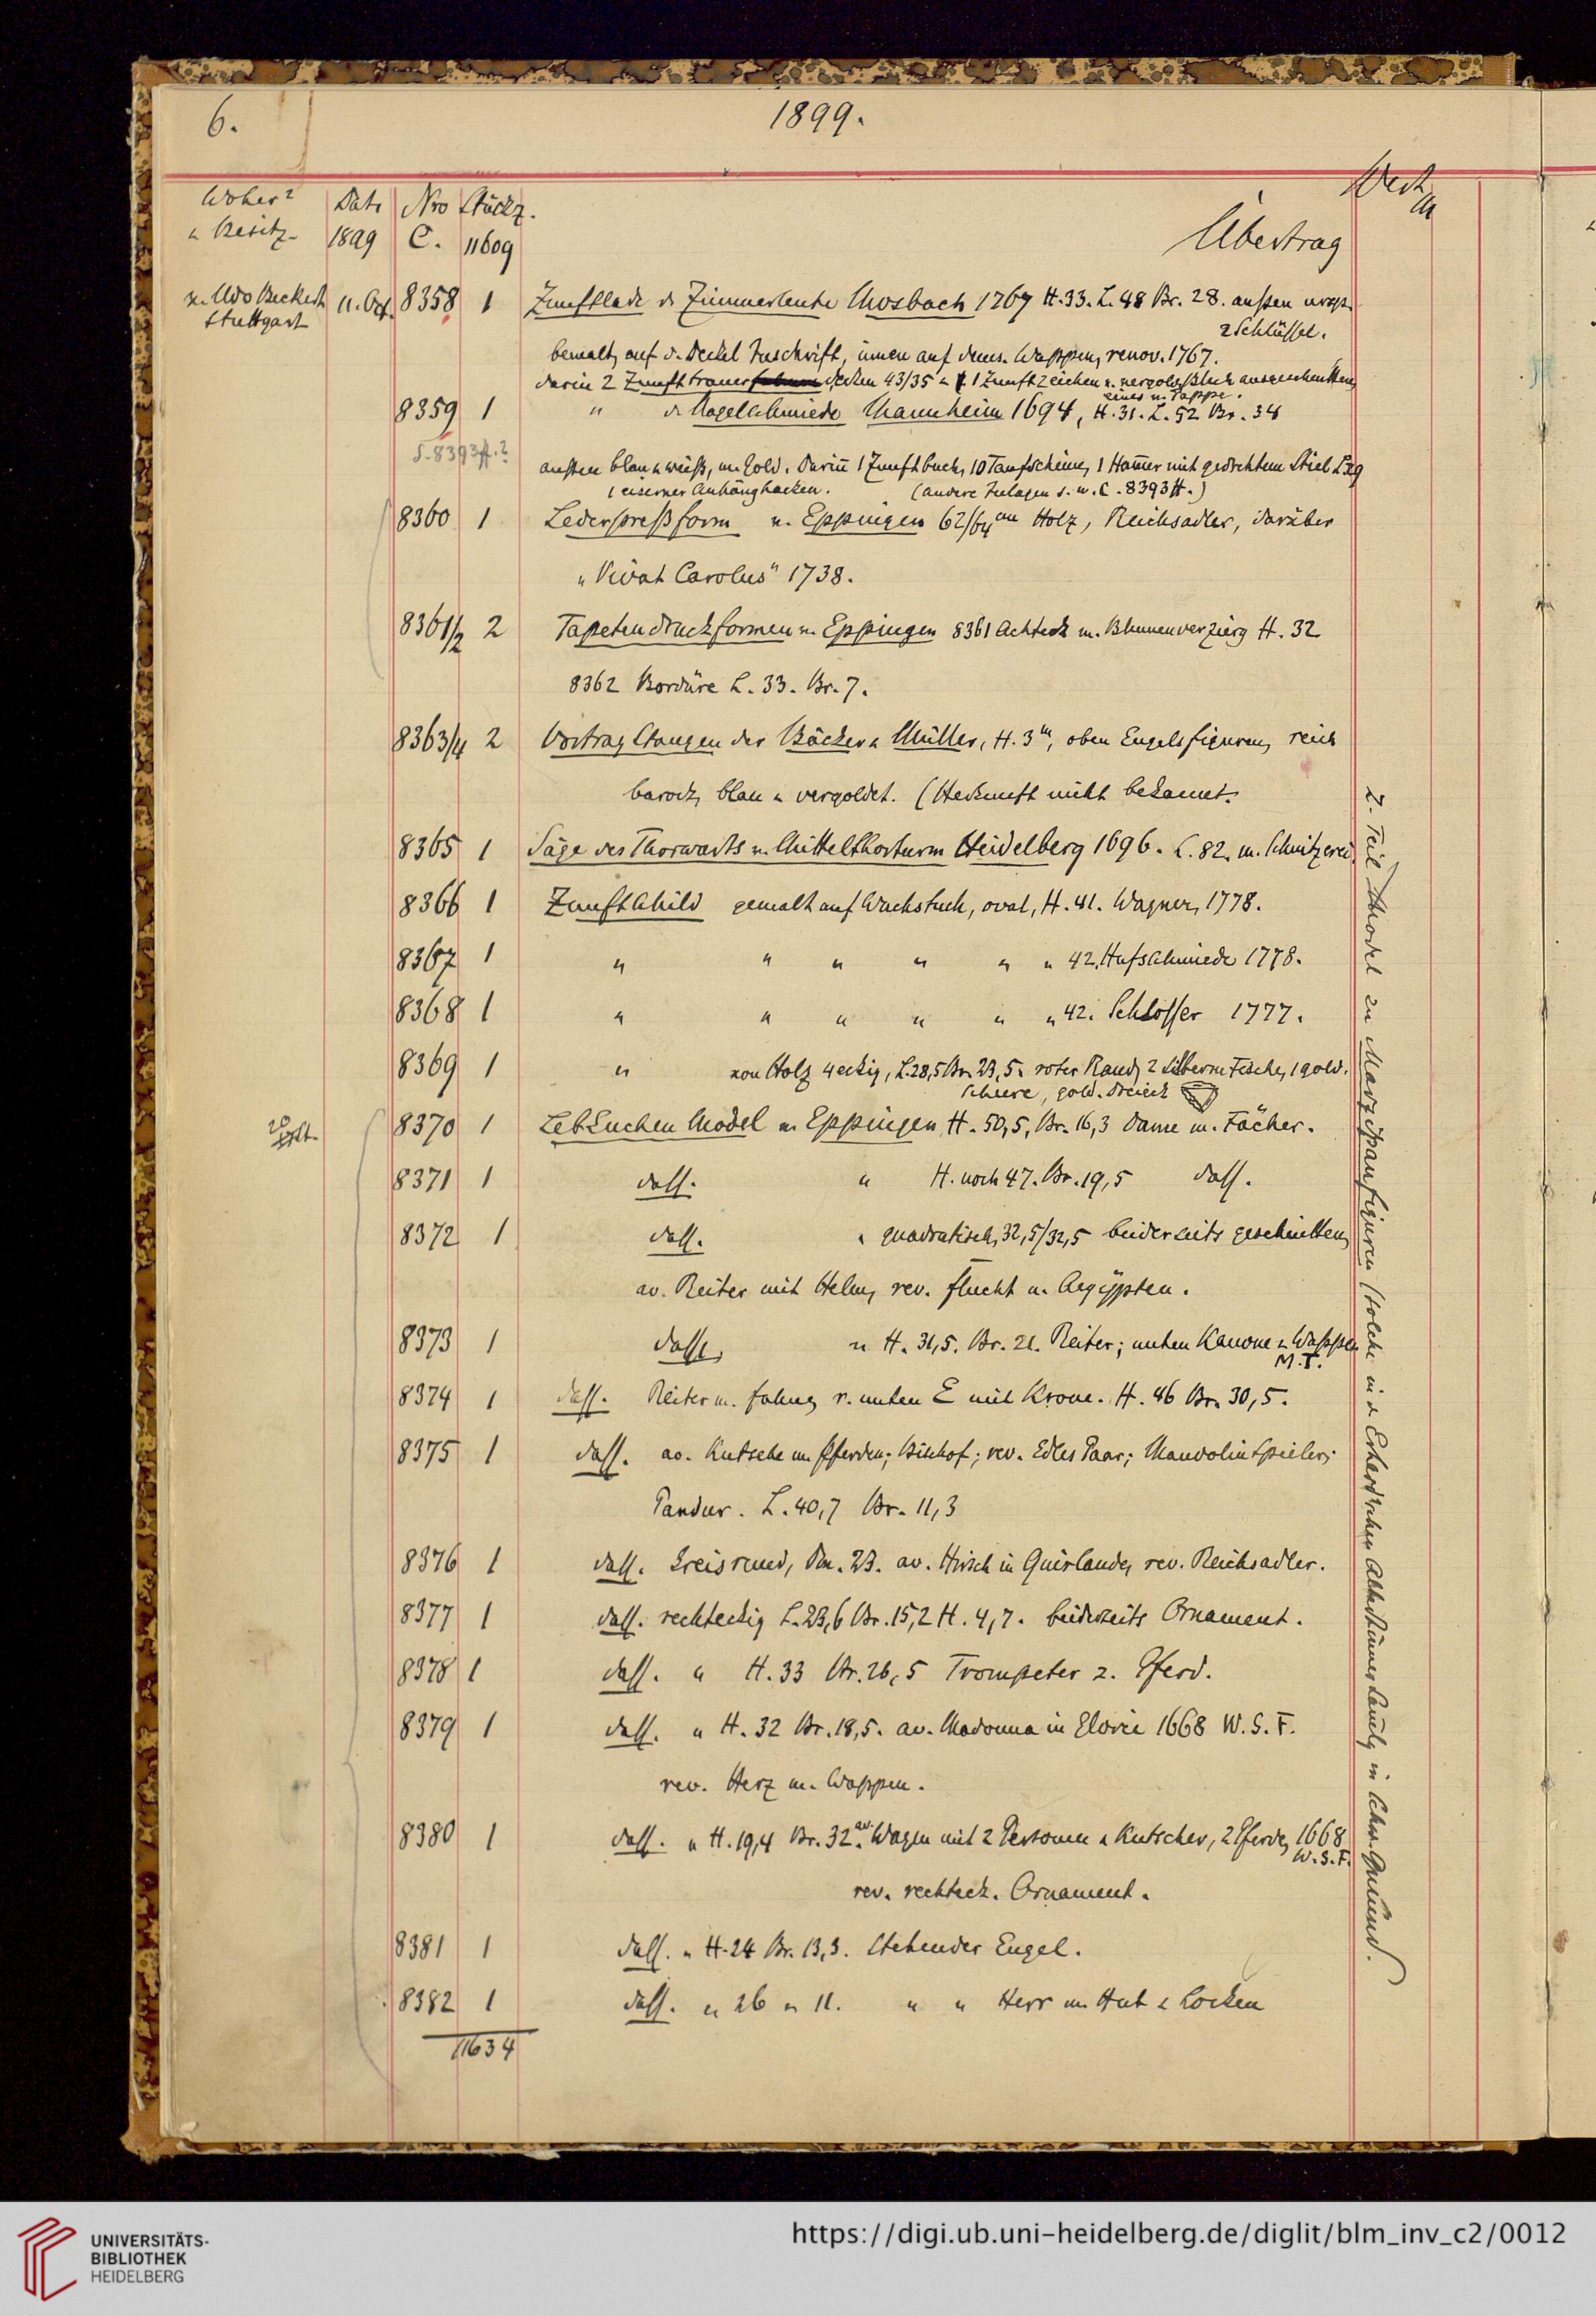 6.
1899.
Woher?
u Besitz.
Date
1899
Nro
C.
Stückz.
11609
Übertrag
Wert
M
v. Udo Beckert
Stuttgart
11. Oct.
8358 1 Zunftlade d Zimmerleute Mosbach 1767 H. 33. L. 48 Br. 28. außen urspr.
2 Schlüssel.
bemalt, auf d. Deckel Inschrift, innen auf dems. Wappen, renov. 1767.
darin 2 Zunfttrauer decken 43/35 u 1 Zunftzeichen
eines m. Pappe.
8359 1 " d Nagelschmiede Mannheim 1694, H. 31. L. 52 Br. 34
S. 8393ff.?
außen blau u weiß, m. Gold. Darin 1 Zunftbuch, 10 Taufscheine, 1 Hammer mit gedrehtem Stiel
1 eiserner Anhänghacken. (andere Einlagen s. w. C. 8393ff.)
8360 1 Lederpreßform v. Eppingen 62/64 cm Holz, Reichsadler, darüber
„Vivat Carolus" 1738.
8361/2 2 Tapetendruckformen v. Eppingen 8361 Achteck m. Blumenverzierg H. 32
8362 Bordüre L. 33. Br. 7.
8363/4 2 Vortragstangen der Bäcker u Müller, H. 3 m, oben Engelsfiguren, reich
barock, blau u vergoldet. (Herkunft nicht bekannt.
8365 1 Säge des Thorwarts v. Mittelthorturm Heidelberg 1696. L. 82. m. Schnitzerei
8366 1 Zunftschild gemalt auf Wachstuch, oval, H. 41. Wagner, 1778.
8367 1 " " " " " " 42. Hufschmiede 1778.
8368 1 " " " " " " 42. Schlosser 1777.
8369 1 " von Holz 4eckig, L. 28,5 Br. 23,5. roter Rand, 2 silberne Fische, 1 gold.
Scheere, gold. Dreieck
8370 1 Lebkuchen Model v. Eppingen, H. 50,5, Br. 16,3 Dame m. Fächer.
8371 1 dass. " H. noch 47. Br. 19,5 dass.
8372 1 dass. " quadratisch, 32,5/32,5 beiderseits geschnitten,
av. Reiter mit Helm, rev. Flucht n. Aegÿpten.
8373 1 dass. " H. 31,5. Br. 21. Reiter; unten Kanone u Wappen
M.T.
8374 1 dass. Reiter m. Fahne, r. unten E mit Krone. H. 46 Br. 30,5.
8375 1 dass. av. Kutsche m. Pferden; Bischof; rev. Edles Paar; Mandolinspieler;
Pandur. L. 40,7 Br. 11,3
8376 1 dass. kreisrund, Dm. 23. av. Hirsch in Guirlande, rev. Reichsadler.
8377 1 dass. rechteckig L. 23,6 Br. 15,2 H. 4,7. beiderseits Ornament.
8378 1 dass. " H. 33 Br. 26,5 Trompeter z. Pferd.
8379 1 dass. " H. 32 Br. 18,5. av. Madonna in Glorie 1668 W. S. F.
rev. Herz m. Wappen.
8380 1 dass. " H. 19,4 Br. 32. av. Wagen mit 2 Personen u Kutscher, 2 Pferde, 1668
W. S. F.
rev. rechteck. Ornament.
8381 1 dass. " H. 24 Br. 13,3. Stehender Engel.
8382 1 dass. " 26 " 11. " " Herr m. Hut u Locken
11634
z. Teil Model zu Marzipanfiguren (solche in d Altertümer Samlg in Schw. Gmünd.
UNIVERSITÄTS-
BIBLIOTHEK
HEIDELBERG
https://digi.ub.uni-heidelberg.de/diglit/blm_inv_c2/0012